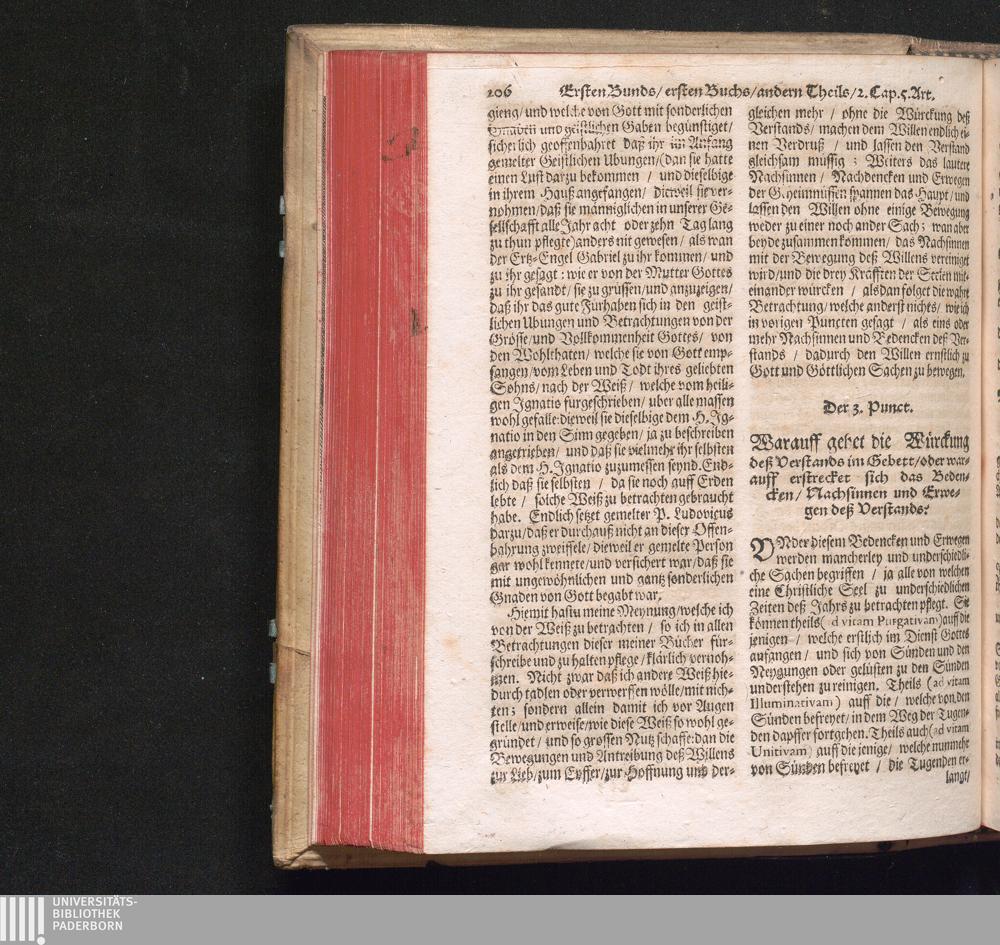 206 Ersten Bunds/ ersten Buchs/ andern Theils/ 2. Cap. 5. Art.
gieng/ und welche von Gott mit sonderlichen
Gnaden und geistlichen Gaben begünstiget/
sicherlich geoffenbahret daß ihr im Anfang
gemelter Geistlichen Ubungen/ (dan sie hatte
einen Lust darzu bekommen / und dieselbige
in ihrem Hauß angefangen/ dieweil sie ver-
nohmen/ daß sie männiglichen in unserer Ge-
sellschafft alle Jahr acht oder zehn Tag lang
zu thun pflegte) anders nit gewesen/ als wan
der Ertz-Engel Gabriel zu ihr kommen/ und
zu ihr gesagt: wie er von der Mutter Gottes
zu ihr gesandt/ sie zu grüssen/ und anzuzeigen/
daß ihr das gute Fürhaben sich in den geist-
lichen Ubungen und Betrachtungen von der
Grösse/ und Vollkommenheit Gottes/ von
den Wohlthaten/ welche sie von Gott emp-
fangen/ vom Leben und Todt ihres geliebten
Sohns/ nach der Weiß/ welche vom heili-
gen Ignatio fürgeschrieben/ uber alle massen
wohl gefalle: dieweil sie dieselbige dem H. Ig-
natio in den Sinn gegeben/ ja zu beschreiben
angetrieben/ und daß sie vielmehr ihr selbsten
als dem H. Ignatio zuzumessen seynd. End-
lich daß sie selbsten / da sie noch auff Erden
lebte / solche Weiß zu betrachten gebraucht
habe. Endlich setzet gemelter P. Ludovicus
darzu/ daß er durchauß nicht an dieser Offen-
bahrung zweiffele/ dieweil er gemelte Person
gar wohl kennete/ und versichert war/ daß sie
mit ungewöhnlichen und gantz sonderlichen
Gnaden von Gott begabt war.
Hiemit hastu meine Meynung/ welche ich
von der Weiß zu betrachten / so ich in allen
Betrachtungen dieser meiner Bücher für-
schreibe und zu halten pflege/ klärlich vernoh-
men. Nicht zwar daß ich andere Weiß hie-
durch tadlen oder verwerffen wölle/ mit nich-
ten; sondern allein damit ich vor Augen
stelle/ und erweise/ wie diese Weiß so wohl ge-
gründet / und so grossen Nutz schaffe: dan die
Bewegungen und Antreibung deß Willens
zur Lieb/ zum Eyffer/ zur Hoffnung und der-
gleichen mehr / ohne die Würckung deß
Verstands/ machen dem Willen endlich ei-
nen Verdruß / und lassen den Verstand
gleichsam müssig; Weiters das lautere
Nachsinnen / Nachdencken und Erwegen
der Geheimnüssen spannen das Haupt/ und
lassen den Willen ohne einige Bewegung
weder zu einer noch ander Sach; wan aber
beyde zusammen kommen/ das Nachsinnen
mit der Bewegung deß Willens vereiniget
wird/ und die drey Kräfften der Seelen mit-
einander würcken / alsdan folget die wahre
Betrachtung/ welche anderst nichts/ wie ich
in vorigen Puncten gesagt / als eins oder
mehr Nachsinnen und Bedencken deß Ver-
stands / dadurch den Willen ernstlich zu
Gott und Göttlichen Sachen zu bewegen.
Der 3. Punct.
Warauff gehet die Würckung
deß Verstands im Gebett/ oder war-
auff erstrecket sich das Beden-
cken/ Nachsinnen und Erwe-
gen deß Verstands?
UNder diesem Bedencken und Erwegen
werden mancherley und underschiedli-
che Sachen begriffen / ja alle von welchen
eine Christliche Seel zu underschiedlichen
Zeiten deß Jahrs zu betrachten pflegt. Sie
können theils (ad vitam Purgativam) auff die
jenigen / welche erstlich im Dienst Gottes
anfangen/ und sich von Sünden und den
Neygungen oder gelüsten zu den Sünden
understehen zu reinigen. Theils (ad vitam
Illuminativam) auff die / welche von den
Sünden befreyet/ in dem Weg der Tugen-
den dapffer fortgehen. Theils auch (ad vitam
Unitivam) auff die jenige/ welche nunmehr
von Sünden befreyet / die Tugenden er-
langt/
UNIVERSITÄTS-
BIBLIOTHEK
PADERBORN